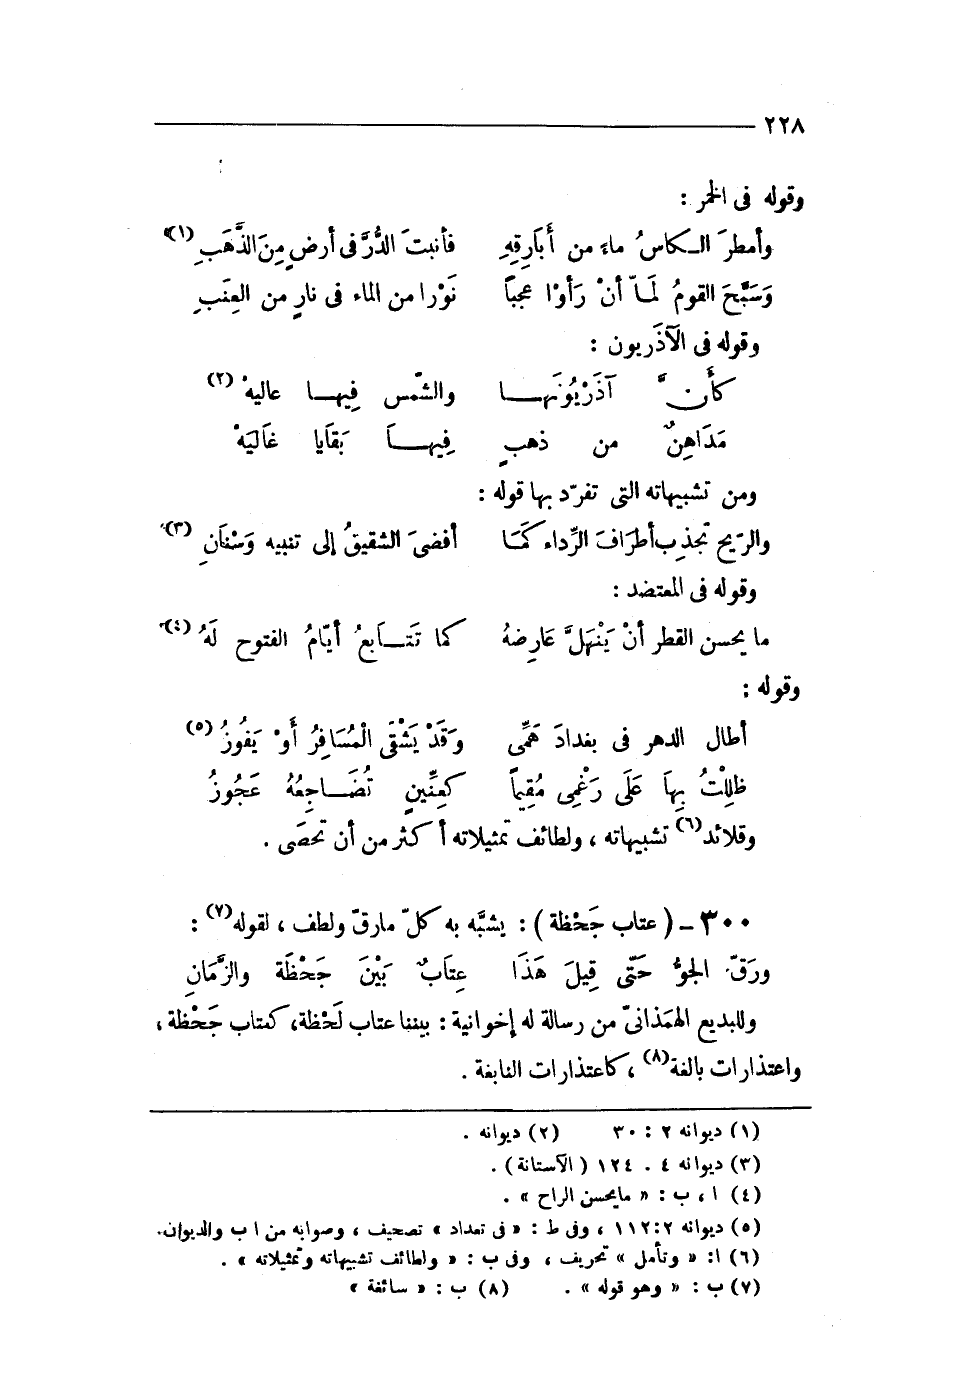 ٢٢٨
وقوله فى الخمر :
وأمطرَ الكاسُ ماء من أَبَارِقِهِ فأنبتَ الدُّرَّ فى أرضٍ مِنَ الذَّهَبِ (١)
وَسَبَّحَ القومُ لَمّا أنْ رَأوْا عجباً نَوْرا من الماء فى نارٍ من العِنَبِ
وقوله فى الآذَريون :
كأَنَّ آذَرْيُونَهَا والشّمس فِيها عاليهْ (٢)
مَدَاهِنٌ من ذهبٍ فِيهاَ بَقَايا غَاليَهْ
ومن تشبيهاته التى تفرّد بها قوله :
والرّيح تجذِب أطرَافَ الرِّداء كَمَا أفضىَ الشقيقُ إلى تنبيه وَسْنَانِ (٣)
وقوله فى المعتضد :
ما يحسن القطر أنْ يَنْهَلَّ عَارِضهُ كما تَتَابعُ أيّامُ الفتوح لَهُ (٤)
وقوله :
أطال الدهر فى بغدادَ هَمِّى وَقَدْ يَشْقَى الْمُسَافِرُ أَوْ يَفُوزُ (٥)
ظلِلْتُ بِهاَ عَلَى رَغْمِى مُقِيماً كعِنِّينٍ تُضَاجِعُهُ عَجُوزُ
وقلائد (٦) تشبيهاته ، ولطائف تمثيلاته أكثر من أن تحصَى .
٣٠٠ – ( عتاب جَحْظة ) : يشبَّه به كلّ مارقّ ولطف ، لقوله (٧) :
ورَقّ الجوُّ حَتّى قِيلَ هَذَا عِتَابٌ بَيْنَ جَحْظَة والزَّمَانِ
وللبديع الهمَذانىّ من رسالة له إخوانية : بيننا عتاب لَحْظة، كعتاب جَحْظة ،
واعتذارات بالغة (٨) ، كاعتذارات النابغة .
(١) ديوانه ٢ : ٣٠ (٢) ديوانه .
(٣) ديوانه ٤ . ١٢٤ ( الآستانة ) .
(٤) ا ، ب : « مايحسن الراح » .
(٥) ديوانه ٢:١١٢ ، وفى ط : « فى تعداد » تصحيف ، وصوابه من ا ب والديوان.
(٦) ا: « وتأمل » تحريف ، وفى ب : « ولطائف تشبيهاته وتمثيلاته » .
(٧) ب : « وهو قوله » . (٨) ب : « سائغة »